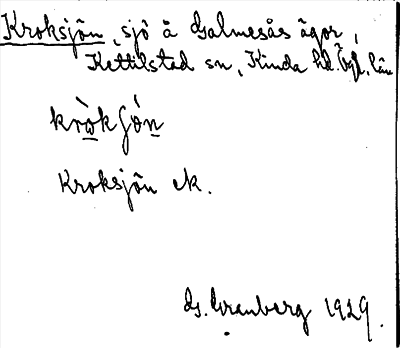 Kroksjön, sjö å Galmesås ägor,
Kettilstad sn, Kinda hd. Ögl. län
kròkʃón
Kroksjön ek.
G. Granberg 1929.